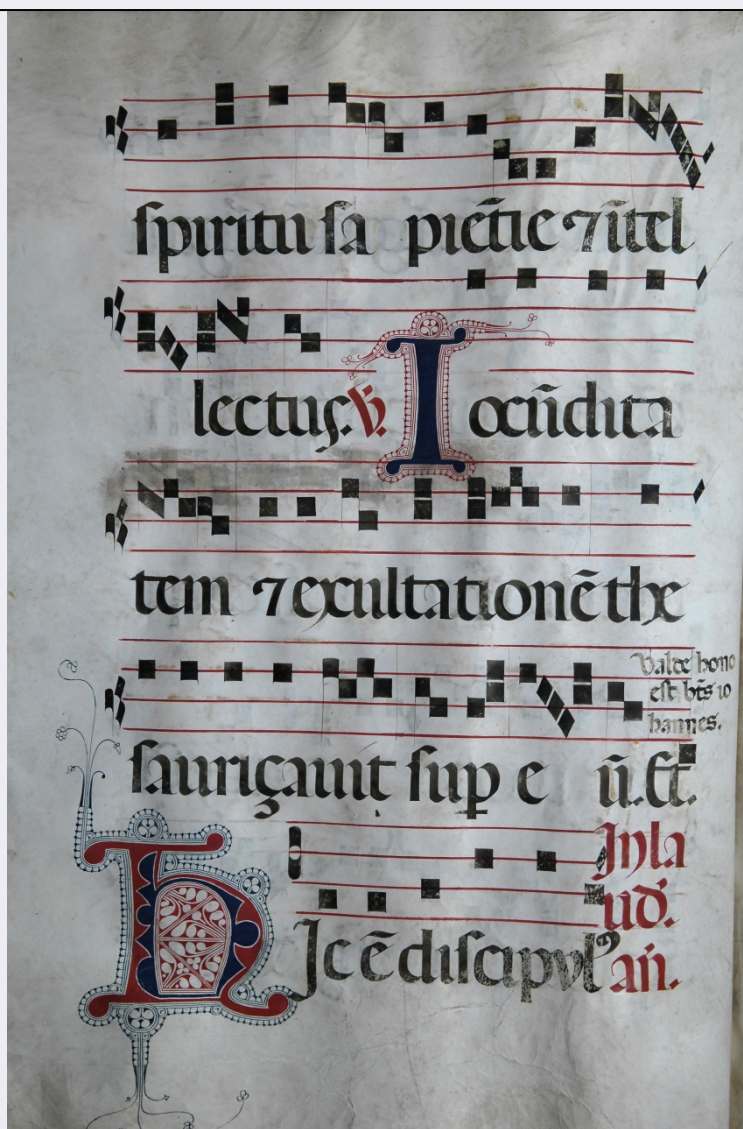 spiritu sa piẽtie ⁊ ĩtel
lectus. ℣. Iocũdita
tem ⁊ exultationẽ the
Valde hono
est bt̃s io
hannes.
sauriçauit sup e ũ. Et.
In la
ud̃.
Hic ẽ discipulꝰ
añ.